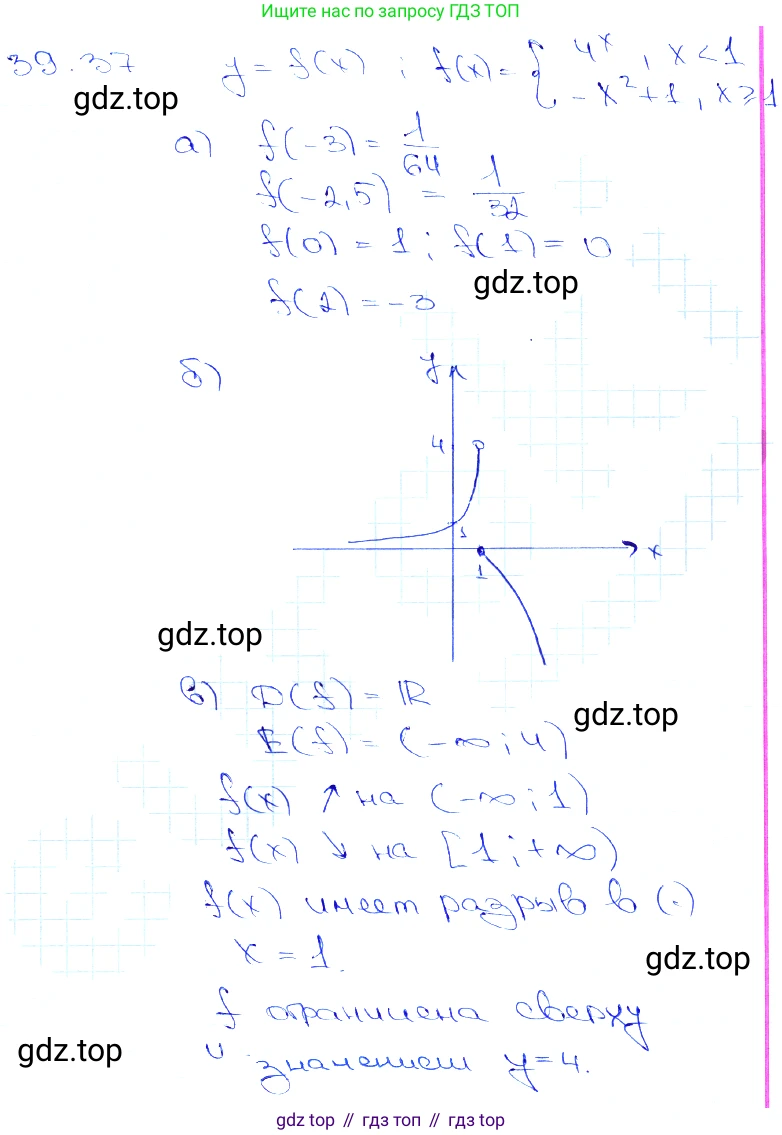 Ищите нас по запросу ГДЗ ТОП
39.37 y = f(x) ; f(x) = { 4^x , x < 1
-x² + 1 , x ⩾ 1
gdz.top
а) f(-3) = 1/64
f(-2,5) = 1/32
f(0) = 1 ; f(1) = 0
gdz.top
f(2) = -3
б)
y
4
1
x
1
gdz.top
в) D(f) = ℝ
gdz.top
E(f) = (-∞; 4)
f(x) ↑ на (-∞; 1)
gdz.top
f(x) ↓ на [1; +∞)
f(x) имеет разрыв в (·)
x = 1.
gdz.top
f ограничена сверху
gdz.top
значением y = 4.
gdz top // гдз топ // gdz top